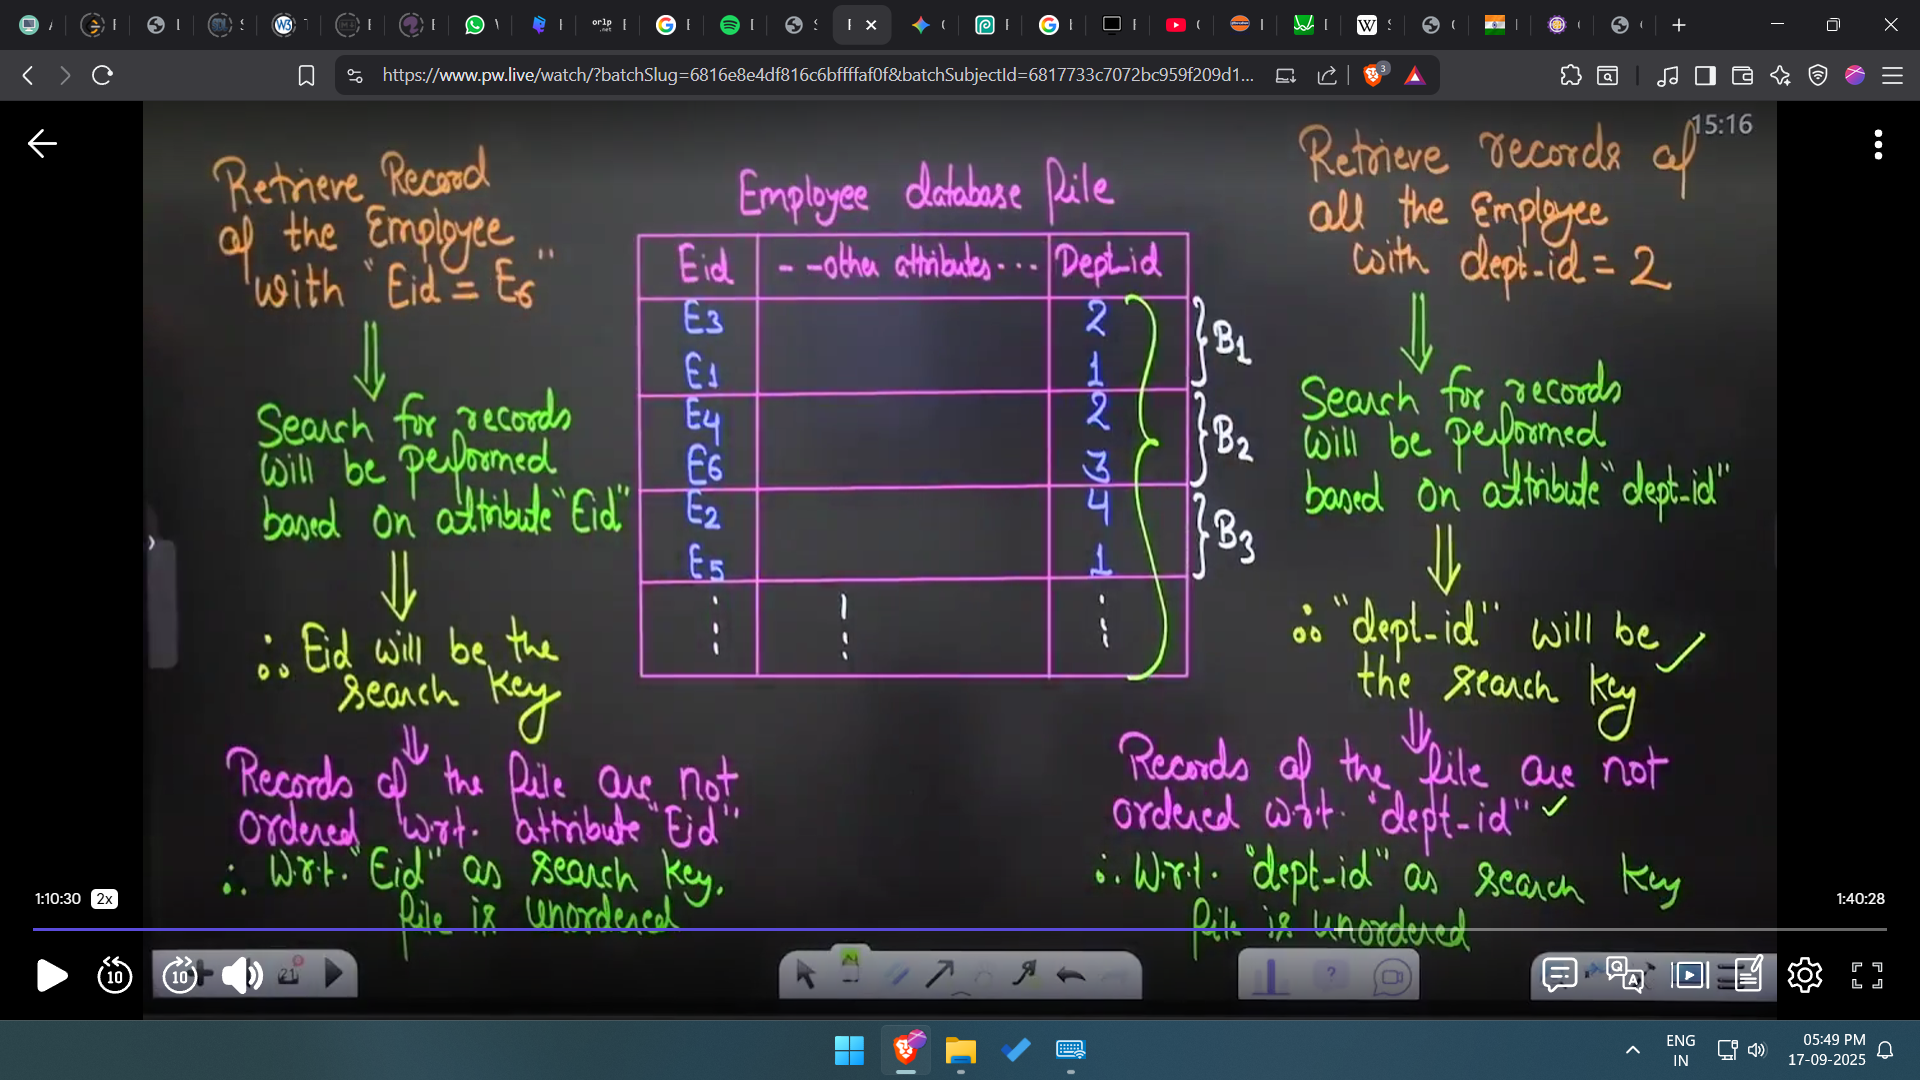 https://www.pw.live/watch/?batchSlug=6816e8e4df816c6bffffaf0f&batchSubjectId=6817733c7072bc959f209d1...
3
15:16
Retrieve Record
of the Employee
with "Eid = E6"
Search for records
will be performed
based on attribute "Eid"
∴ Eid will be the
search key
Records of the file are not
ordered w.r.t. attribute "Eid"
∴ W.r.t. "Eid" as search key.
file is unordered
Employee database file
Eid - - other attributes - - - Dept_id
E3 2
E1 1
B1
E4 2
E6 3
B2
E2 4
E5 1
B3
Retrieve records of
all the Employee
with dept-id = 2
Search for records
will be performed
based on attribute "dept-id"
∴ "dept-id" will be
the search key
Records of the file are not
ordered w.r.t. "dept-id"
∴ W.r.t. "dept-id" as search key
file is unordered
1:10:30 2x
1:40:28
10 10
21
ENG
IN
05:49 PM
17-09-2025